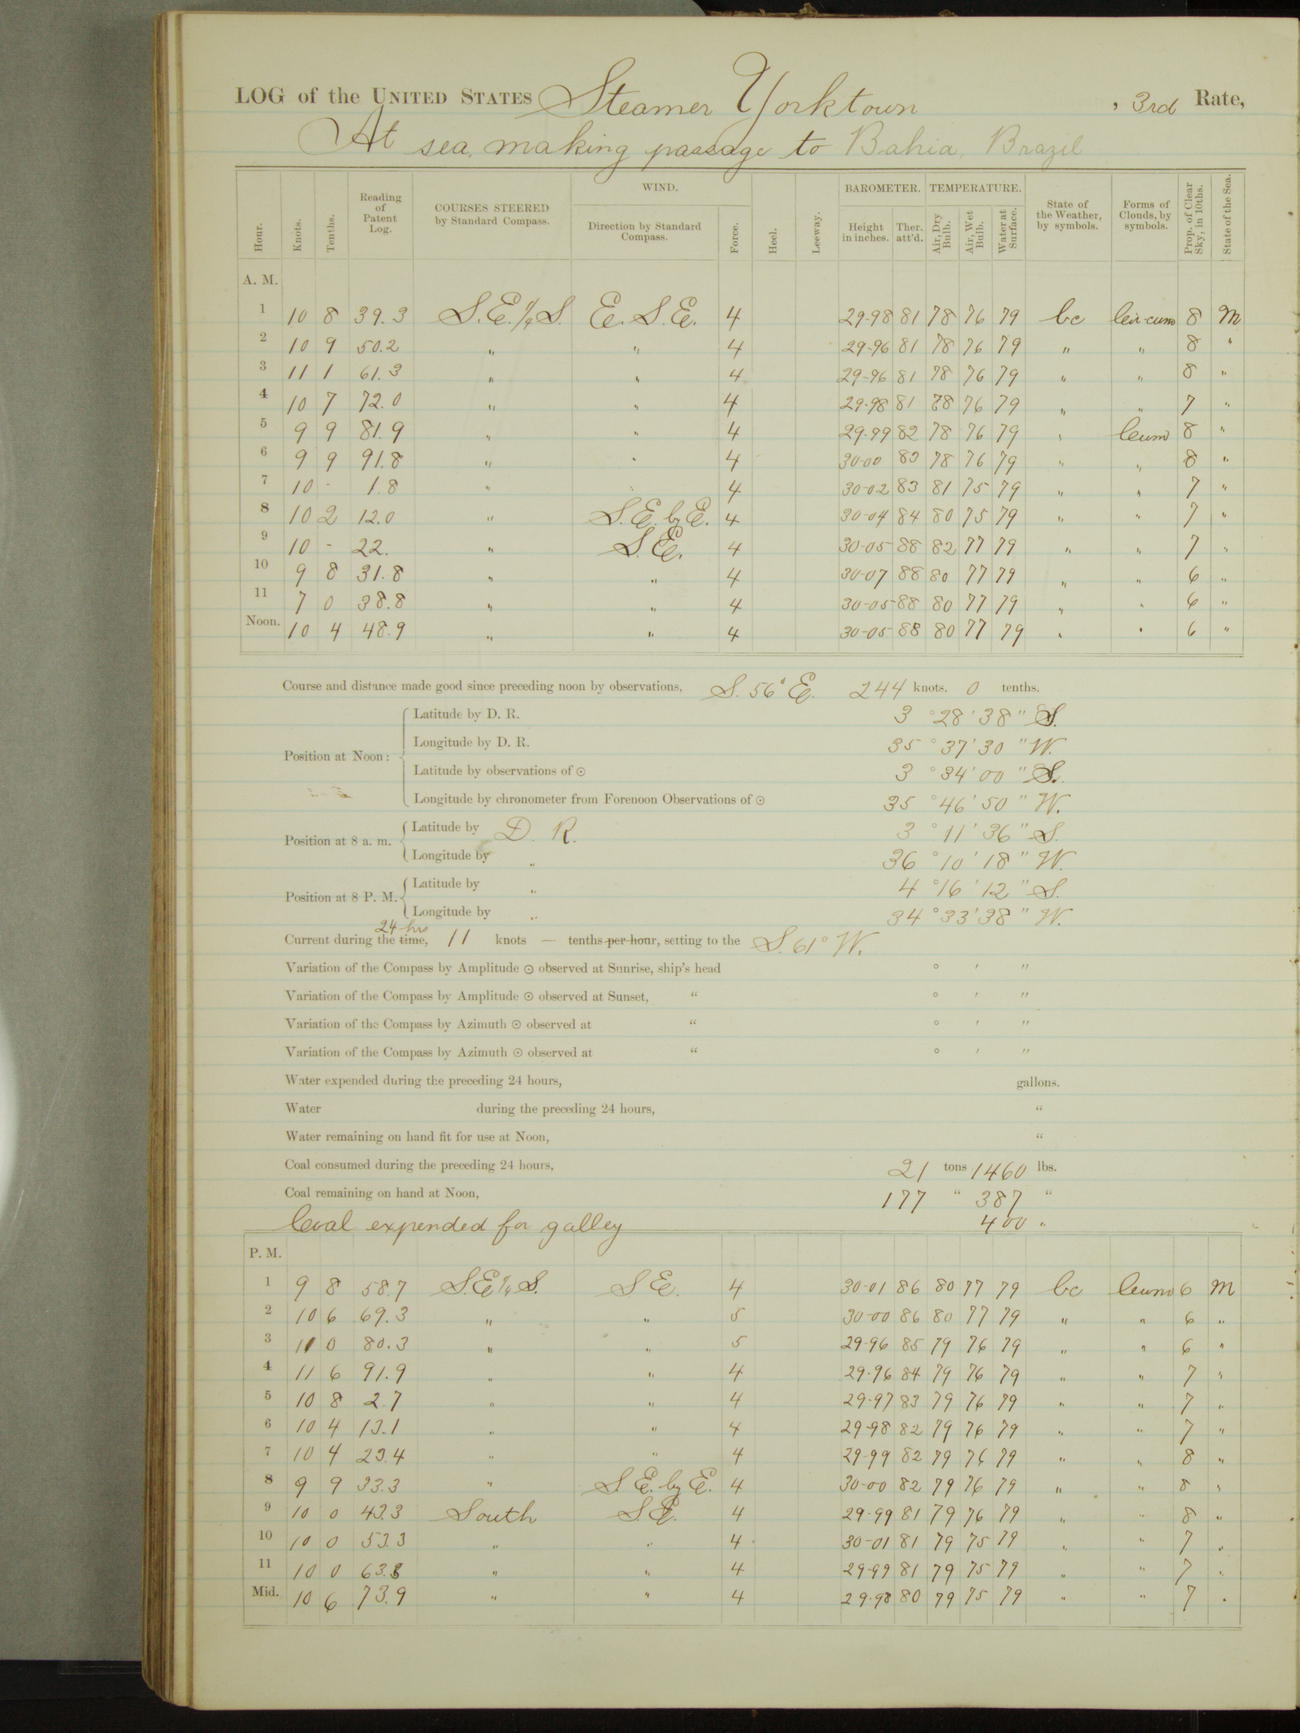 LOG of the UNITED STATES Steamer Yorktown , 3rd Rate,
At sea, making passage to Bahia, Brazil
Hour. Knots. Tenths. Reading of Patent Log. COURSES STEERED by Standard Compass. WIND. Direction by Standard Compass. Force. Heel. Leeway. BAROMETER. Height in inches. Ther. att'd. TEMPERATURE. Air, Dry Bulb. Air, Wet Bulb. Water at Surface. State of the Weather, by symbols. Forms of Clouds, by symbols. Prop. of Clear Sky, in 10ths. State of the Sea.
A. M.
1 10 8 39.3 S.E.1/4S. E.S.E. 4 29-98 81 78 76 79 bc Cir-cum 8 M
2 10 9 50.2 " " 4 29-96 81 78 76 79 " " 8 "
3 11 1 61.3 " " 4 29-96 81 78 76 79 " " 8 "
4 10 7 72.0 " " 4 29-98 81 78 76 79 " " 7 "
5 9 9 81.9 " " 4 29-99 82 78 76 79 " Cum 8 "
6 9 9 91.8 " " 4 30-00 83 78 76 79 " " 8 "
7 10 - 1.8 " " 4 30-02 83 81 75 79 " " 7 "
8 10 2 12.0 " S.E. by E. 4 30-04 84 80 75 79 " " 7 "
9 10 - 22. " S.E. 4 30-05 88 82 77 79 " " 7 "
10 9 8 31.8 " " 4 30-07 88 80 77 79 " " 6 "
11 7 0 38.8 " " 4 30-05 88 80 77 79 " " 6 "
Noon. 10 4 48.9 " " 4 30-05 88 80 77 79 " " 6 "
Course and distance made good since preceding noon by observations, S. 56° E. 244 knots. 0 tenths.
Position at Noon:
Latitude by D. R. 3 ° 28 ' 38 " S.
Longitude by D. R. 35 ° 37 ' 30 " W.
Latitude by observations of ☉ 3 ° 34 ' 00 " S.
Longitude by chronometer from Forenoon Observations of ☉ 35 ° 46 ' 50 " W.
Position at 8 a. m. Latitude by D. R. 3 ° 11 ' 36 " S.
Longitude by " 36 ° 10 ' 18 " W.
Position at 8 P. M. Latitude by " 4 ° 16 ' 12 " S.
Longitude by " 34 ° 33 ' 38 " W.
24 hrs
Current during the time, 11 knots — tenths per hour, setting to the S. 61° W.
Variation of the Compass by Amplitude ☉ observed at Sunrise, ship's head ° ' "
Variation of the Compass by Amplitude ☉ observed at Sunset, " ° ' "
Variation of the Compass by Azimuth ☉ observed at " ° ' "
Variation of the Compass by Azimuth ☉ observed at " ° ' "
Water expended during the preceding 24 hours, gallons.
Water during the preceding 24 hours, "
Water remaining on hand fit for use at Noon, "
Coal consumed during the preceding 24 hours, 21 tons 1460 lbs.
Coal remaining on hand at Noon, 177 " 387 "
Coal expended for galley 400 "
P. M.
1 9 8 58.7 S.E1/4S. S E. 4 30-01 86 80 77 79 bc Cum 6 M
2 10 6 69.3 " " 5 30-00 86 80 77 79 " " 6 "
3 11 0 80.3 " " 5 29-96 85 79 76 79 " " 6 "
4 11 6 91.9 " " 4 29-96 84 79 76 79 " " 7 "
5 10 8 2.7 " " 4 29-97 83 79 76 79 " " 7 "
6 10 4 13.1 " " 4 29-98 82 79 76 79 " " 7 "
7 10 4 23.4 " " 4 29-99 82 79 76 79 " " 8 "
8 9 9 33.3 " S E. by E. 4 30-00 82 79 76 79 " " 8 "
9 10 0 43.3 South S E. 4 29-99 81 79 76 79 " " 8 "
10 10 0 53.3 " " 4 30-01 81 79 75 79 " " 7 "
11 10 0 63.3 " " 4 29-99 81 79 75 79 " " 7 "
Mid. 10 6 73.9 " " 4 29-98 80 79 75 79 " " 7 "